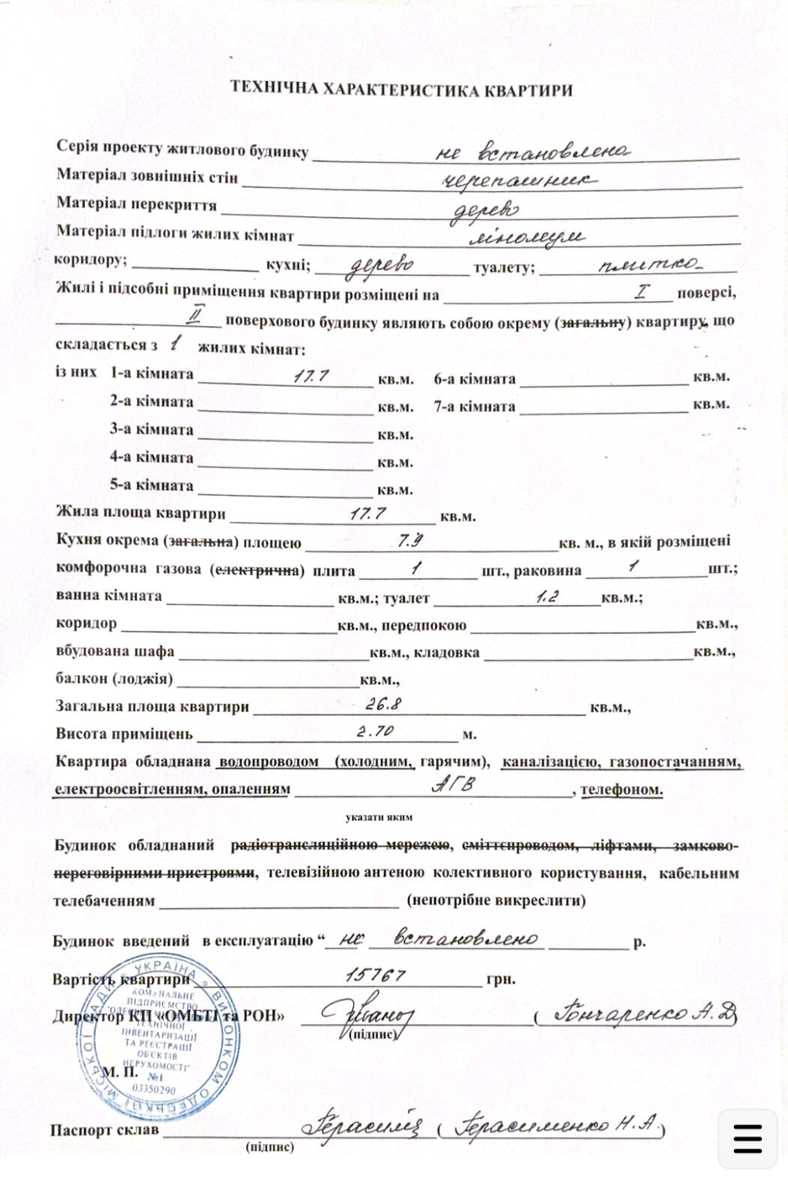 ТЕХНІЧНА ХАРАКТЕРИСТИКА КВАРТИРИ
Серія проекту житлового будинку не встановлена
Матеріал зовнішніх стін черепашник
Матеріал перекриття дерево
Матеріал підлоги жилих кімнат лінолеум
коридору; кухні; дерево туалету; плитка
Жилі і підсобні приміщення квартири розміщені на I поверсі,
II поверхового будинку являють собою окрему (загальну) квартиру, що
складається з 1 жилих кімнат:
із них 1-а кімната 17.7 кв.м. 6-а кімната кв.м.
2-а кімната кв.м. 7-а кімната кв.м.
3-а кімната кв.м.
4-а кімната кв.м.
5-а кімната кв.м.
Жила площа квартири 17.7 кв.м.
Кухня окрема (загальна) площею 7.9 кв. м., в якій розміщені
комфорочна газова (електрична) плита 1 шт., раковина 1 шт.;
ванна кімната кв.м.; туалет 1.2 кв.м.;
коридор кв.м., передпокою кв.м.,
вбудована шафа кв.м., кладовка кв.м.,
балкон (лоджія) кв.м.,
Загальна площа квартири 26.8 кв.м.,
Висота приміщень 2.70 м.
Квартира обладнана водопроводом (холодним, гарячим), каналізацією, газопостачанням,
електроосвітленням, опаленням АГВ, телефоном.
указати яким
Будинок обладнаний радіотрансляційною мережею, сміттєпроводом, ліфтами, замково-
переговірними пристроями, телевізійною антеною колективного користування, кабельним
телебаченням (непотрібне викреслити)
Будинок введений в експлуатацію “ не встановлено р.
Вартість квартири 15767 грн.
Директор КП «ОМБТІ та РОН» (Гончаренко А.Д)
(підпис)
М. П.
УКРАЇНА * ВИКОНКОМ ОДЕСЬКОЇ МІСЬКОЇ РАДИ
КОМУНАЛЬНЕ
ПІДПРИЄМСТВО
ТЕХНІЧНОЇ
ІНВЕНТАРИЗАЦІЇ
ТА РЕЄСТРАЦІЇ
ОБ'ЄКТІВ
НЕРУХОМОСТІ"
№1
03350290
Паспорт склав (Герасименко Н.А.)
(підпис)